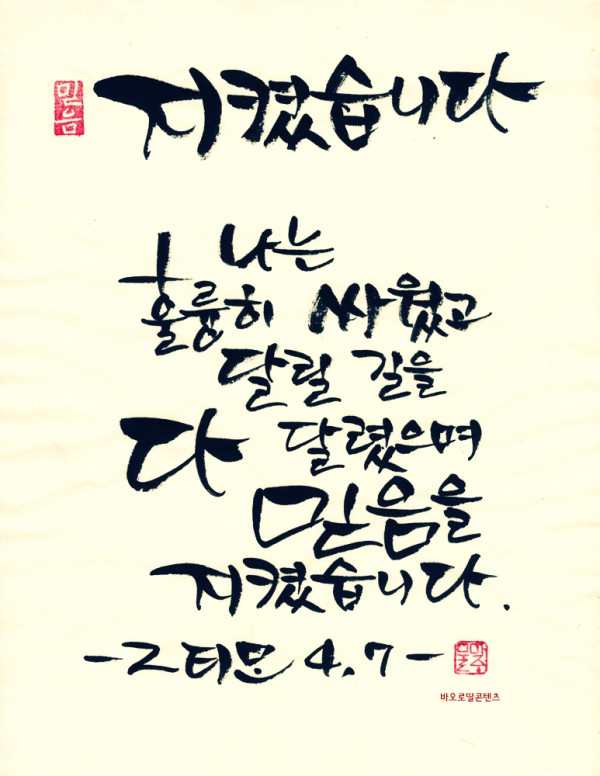 믿음
지켰습니다
나는
훌륭히 싸웠고
달릴 길을
다 달렸으며
믿음을
지켰습니다.
-2티모 4,7-
바오로딸콘텐츠